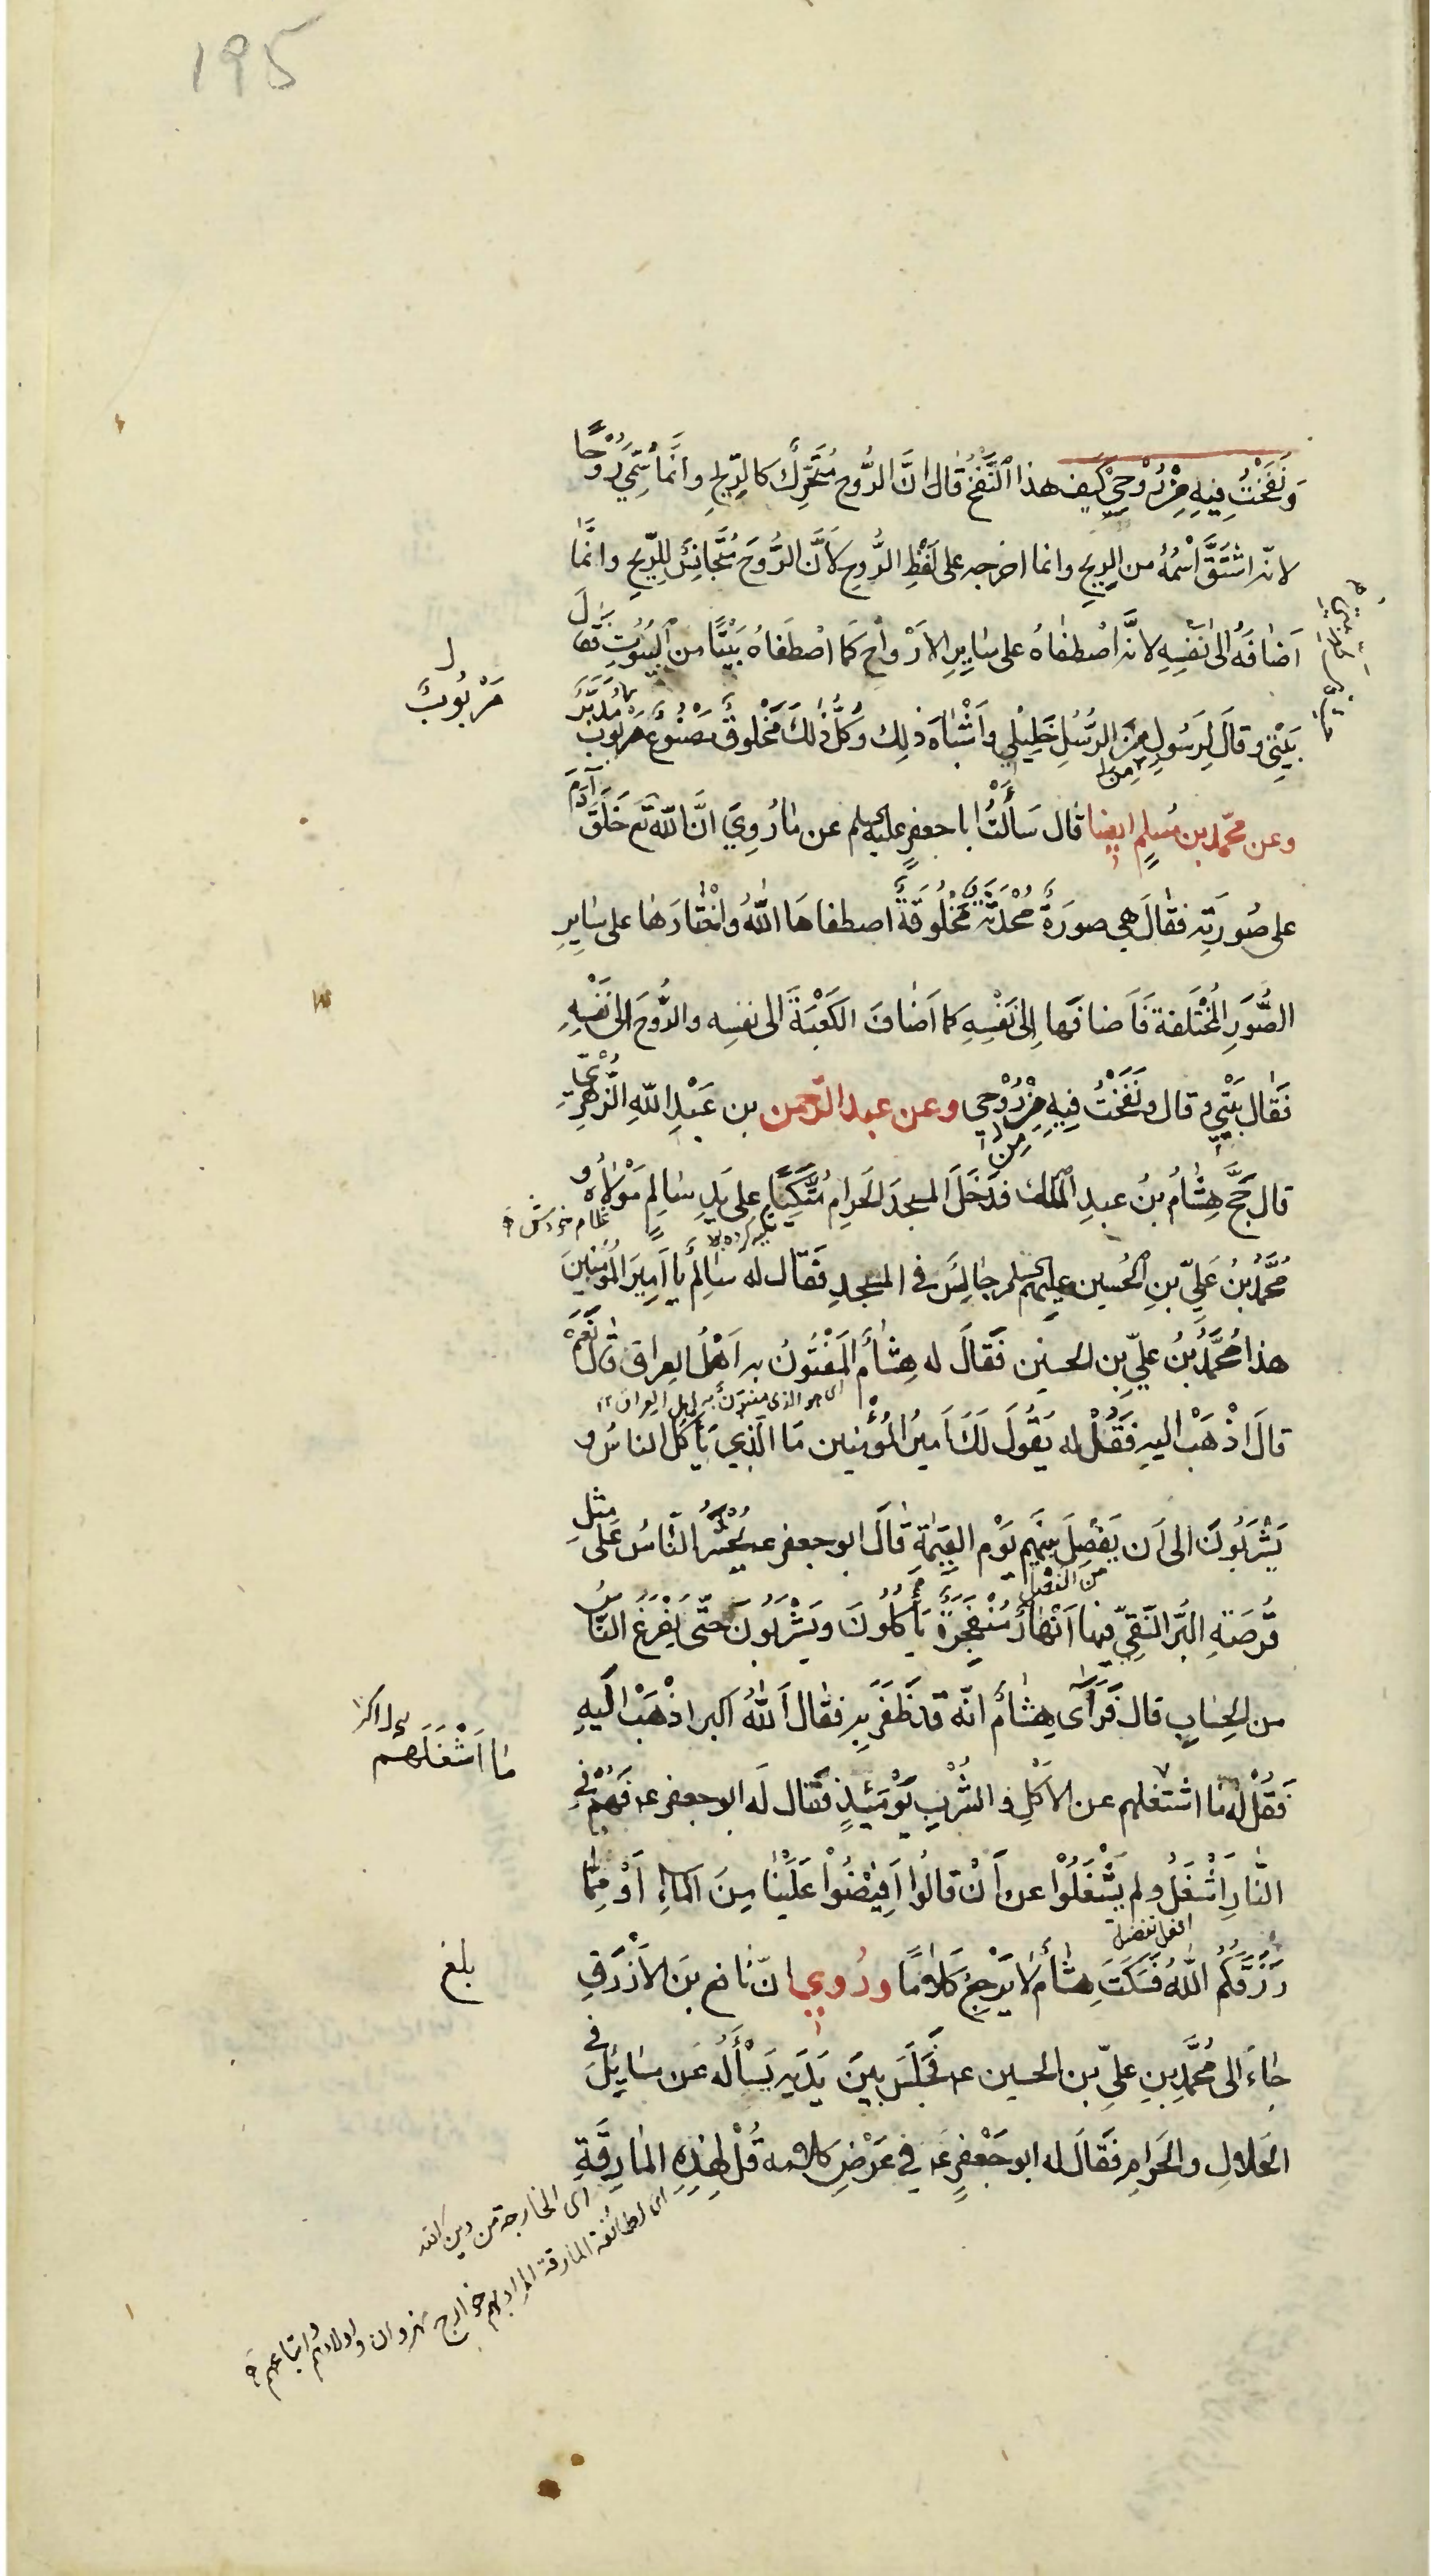 195
وَنَفَخْتُ فِيهِ مِنْ رُوْحِيْ كَيف هذا النَّفْخُ قٰالَ انَّ الرُّوح مُتَحَرِّكٌ كالرِّيحِ وانَّما سُمِّيَ رُوْحًا
لانّه اشْتَقَّ اسْمُهُ من الرِيحِ وانما اخرجه على لَفْظِ الرُّوحِ لاَنَّ الرُّوحَ مُتَجَانِسٌ لِلرِّيحِ وانَّما
اَضٰافَهُ الىٰ نَفْسِهِ لانَّه اصْطَفٰاهُ على سٰايِرِ الارْوٰاحِ كَمَا اصْطَفٰاهُ بَيْتًا من الْبُيُوتِ فَقٰالَ
بَيْتِيْ وقٰالَ لِرَسُولٍ مِنَ الرُّسُلِ خَلِيْلِي وَاَشْبٰاهَ ذٰلِكَ وَكُلُّ ذٰلِكَ مَخْلُوقٌ مَصْنُوعٌ مَرْبُوبٌ مُدَبَّرٌ
مَرْبُوبٌ
مِن
وعن محمّد بن مُسلِمٍ ايضا قٰال سَاَلْتُ ابا جعفرٍ عليه السلم عن مٰا رُوِيَ انَّ اللّٰه تع خَلَقَ آدَمَ
على صُورَتِه فقٰالَ هِي صورَةٌ مُحْدَثَةٌ مَخْلُوقَةٌ اصطفاهَا اللّٰهُ وَاخْتٰارَهٰا على سٰايِرِ
الصُّوَرِ المُخْتَلِفة فَاَضافَها اِلىٰ نَفْسِهِ كما اَضٰافَ الكَعْبَةَ الى نفسِه والرُّوحَ الىٰ نَفْسِهِ
فَقٰال بَيْتِيْ وقال ونَفَخْتُ فِيهِ مِنْ رُوْحِي وعن عبد الرّحمن بن عَبْدِ اللّٰهِ الزُّهْرِيّ
مِن
قال حَجَّ هِشٰامُ بنُ عبدِ الْمَلِك فَدَخَلَ المسجدَ الحَرام مُتَّكِئًا على يَدِ سٰالِمٍ مَوْلاٰهُ و
تكيه كرده بود
غلام خودش
مُحَمَّدُ بنُ عَلِيِّ بنِ الحُسين عليهم السلم جٰالِسٌ فى المسجدِ فَقٰال له سٰالِمٌ يا اَمِيرَ المُؤمِنينَ
هذا مُحَمَّدُ بنُ عليِّ بن الحسين فَقٰالَ له هِشٰامٌ المَفْتُونُ به اَهْلُ العِراقِ قٰالَ نَعَمْ
اى هو الذى مفتون به اهل العراق ١٢
قٰالَ اذْهَبْ اليه فَقُلْ له يَقُولُ لَكَ اَمِيرُ المُؤْمِنين مَا الَّذِي يَأكُلُ الناسُ و
يَشْرَبُونَ الى اَن يُفْصَلَ بينَهم يَوْم القِيٰمَةِ قٰالَ ابو جعفر ع يُحْشَرُ النّٰاسُ عَلىٰ مِثلِ
قُرْصَةِ البُرِّ النَّقِيِّ فيها اَنْهٰارٌ مُنْفَجِرَةٌ يَأكُلُونَ ويَشْرَبُونَ حتّٰى يُفْرَغَ النّٰاسُ
من الحِسٰابِ قال فَرَأىٰ هِشٰامٌ انّه قد ظَفَرَ بِه فقٰال اَللّٰهُ اكبر اذْهَبْ اِلَيهِ
فَقُلْ لَهُ مٰا اشتغلهم عن الاَكْلِ و الشُّرْبِ يَوْمَئِذٍ فَقٰال لَه ابو جعفر ع فَهُمْ فِي
مٰا اَشْغَلَهُم
النّٰارِ اَشْغَلُ ولم يَشْغَلُوْا عن اَنْ قالُوا اَفِيْضُوْا عَلَيْنٰا مِنَ الْمٰاءِ اَوْ مِمّٰا
افعل تفضيل
رَزَقَكُمُ اللّٰهُ فَسَكَتَ هِشٰامٌ لاٰ يَرْجِعُ كَلاٰمًا ورُوِي انّ نٰافع بنَ الاَزْرَقِ
بلغ
جٰاءَ الى مُحَمَّدِ بنِ عليِّ بن الحسين ع فَجَلَسَ بينَ يَدَيه يَسْأَلُهُ عَن مسٰايِلَ فى
الحَلالِ والحَرامِ فَقٰالَ له ابو جَعْفرٍ ع فِي عَرْضِ كلامه قُلْ لِهٰذِهِ المٰارِقَةِ
اى الخارجة من دين الله
اى لطائفة المارقة المراد بهم خوارج نهروان واولادهم واتباعهم